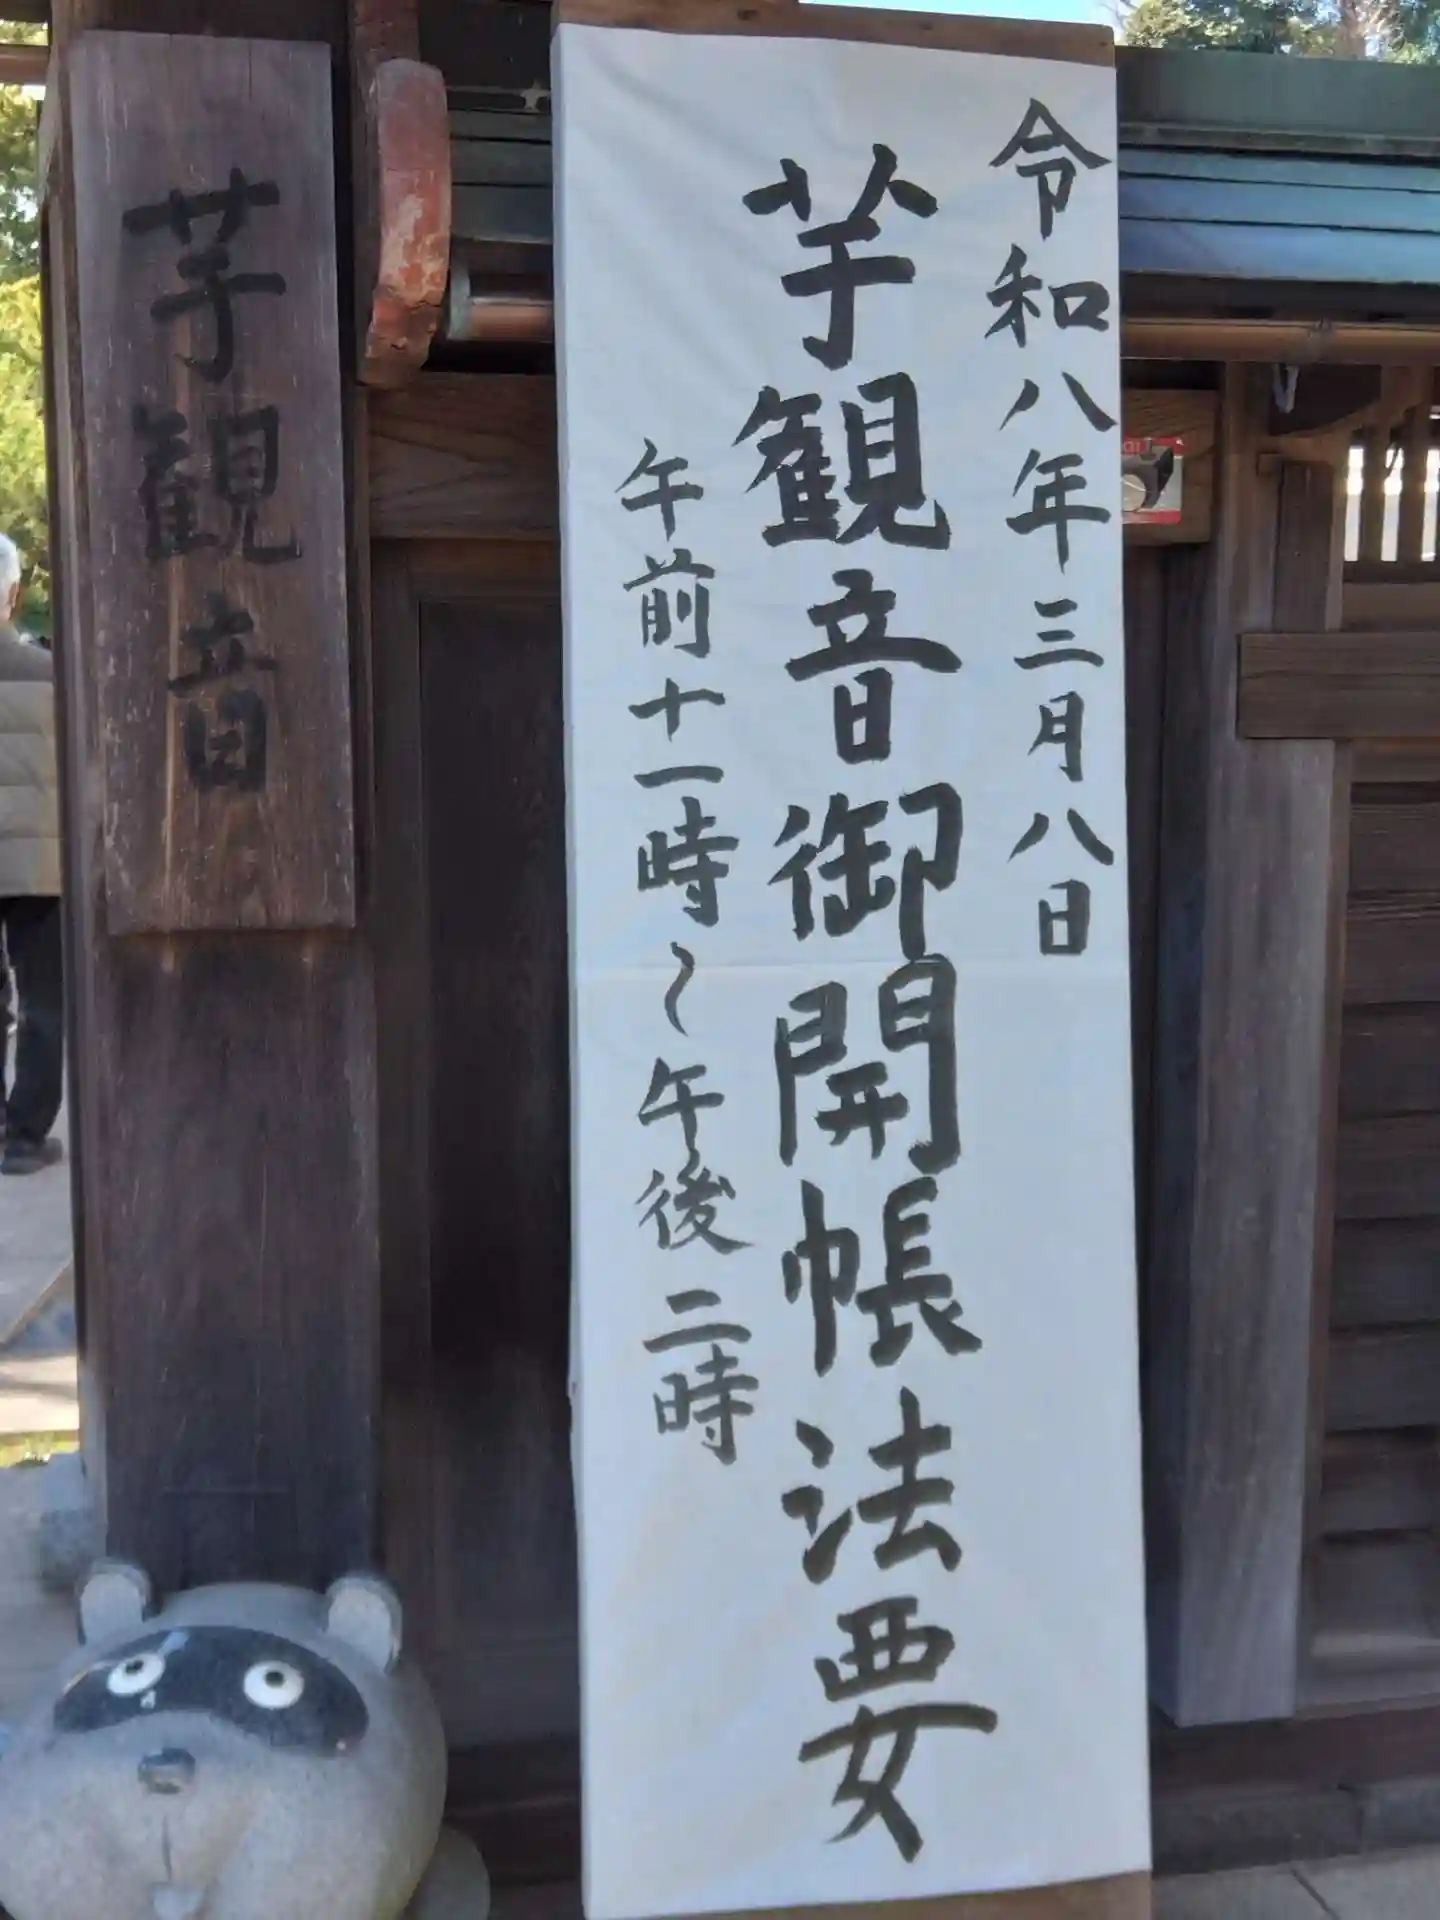 芋観音
令和八年三月八日
芋観音御開帳法要
午前十一時〜午後二時